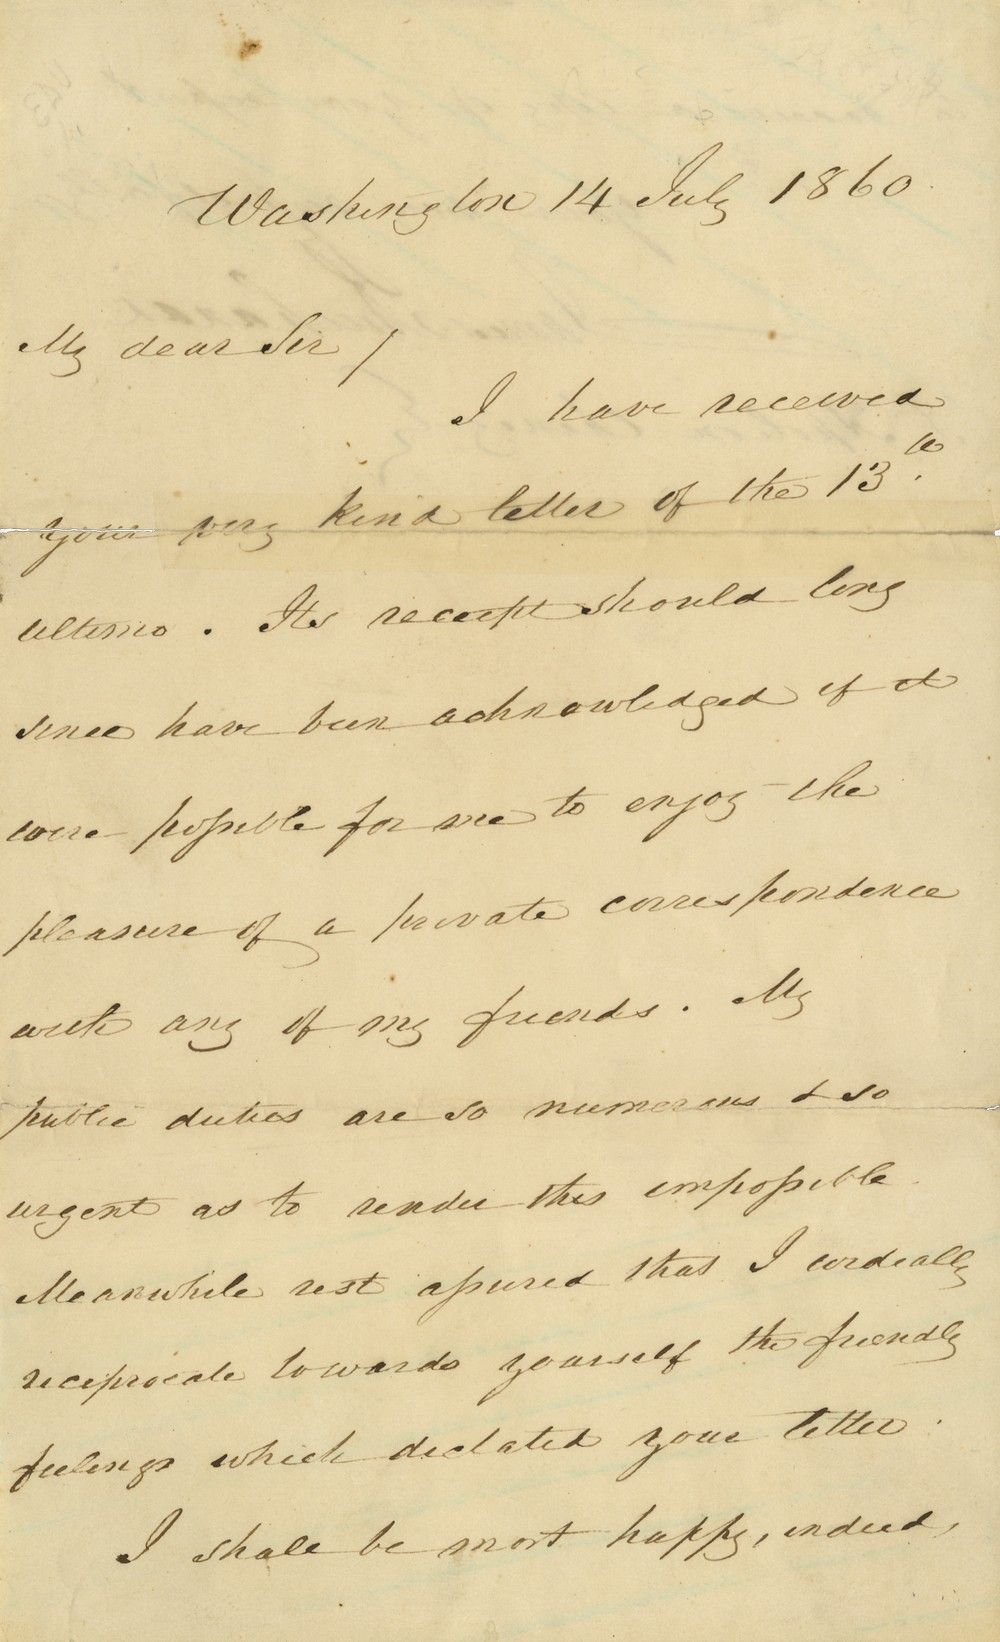 Washington 14 July 1860.
My dear Sir /
I have received
your very kind letter of the 13th.
ultimo. Its receipt should long
since have been acknowledged if it
were possible for me to enjoy the
pleasure of a private correspondence
with any of my friends. My
public duties are so numerous & so
urgent as to render this impossible.
Meanwhile rest assured that I cordially
reciprocate towards yourself the friendly
feelings which dictated your letter.
I shall be most happy, indeed,